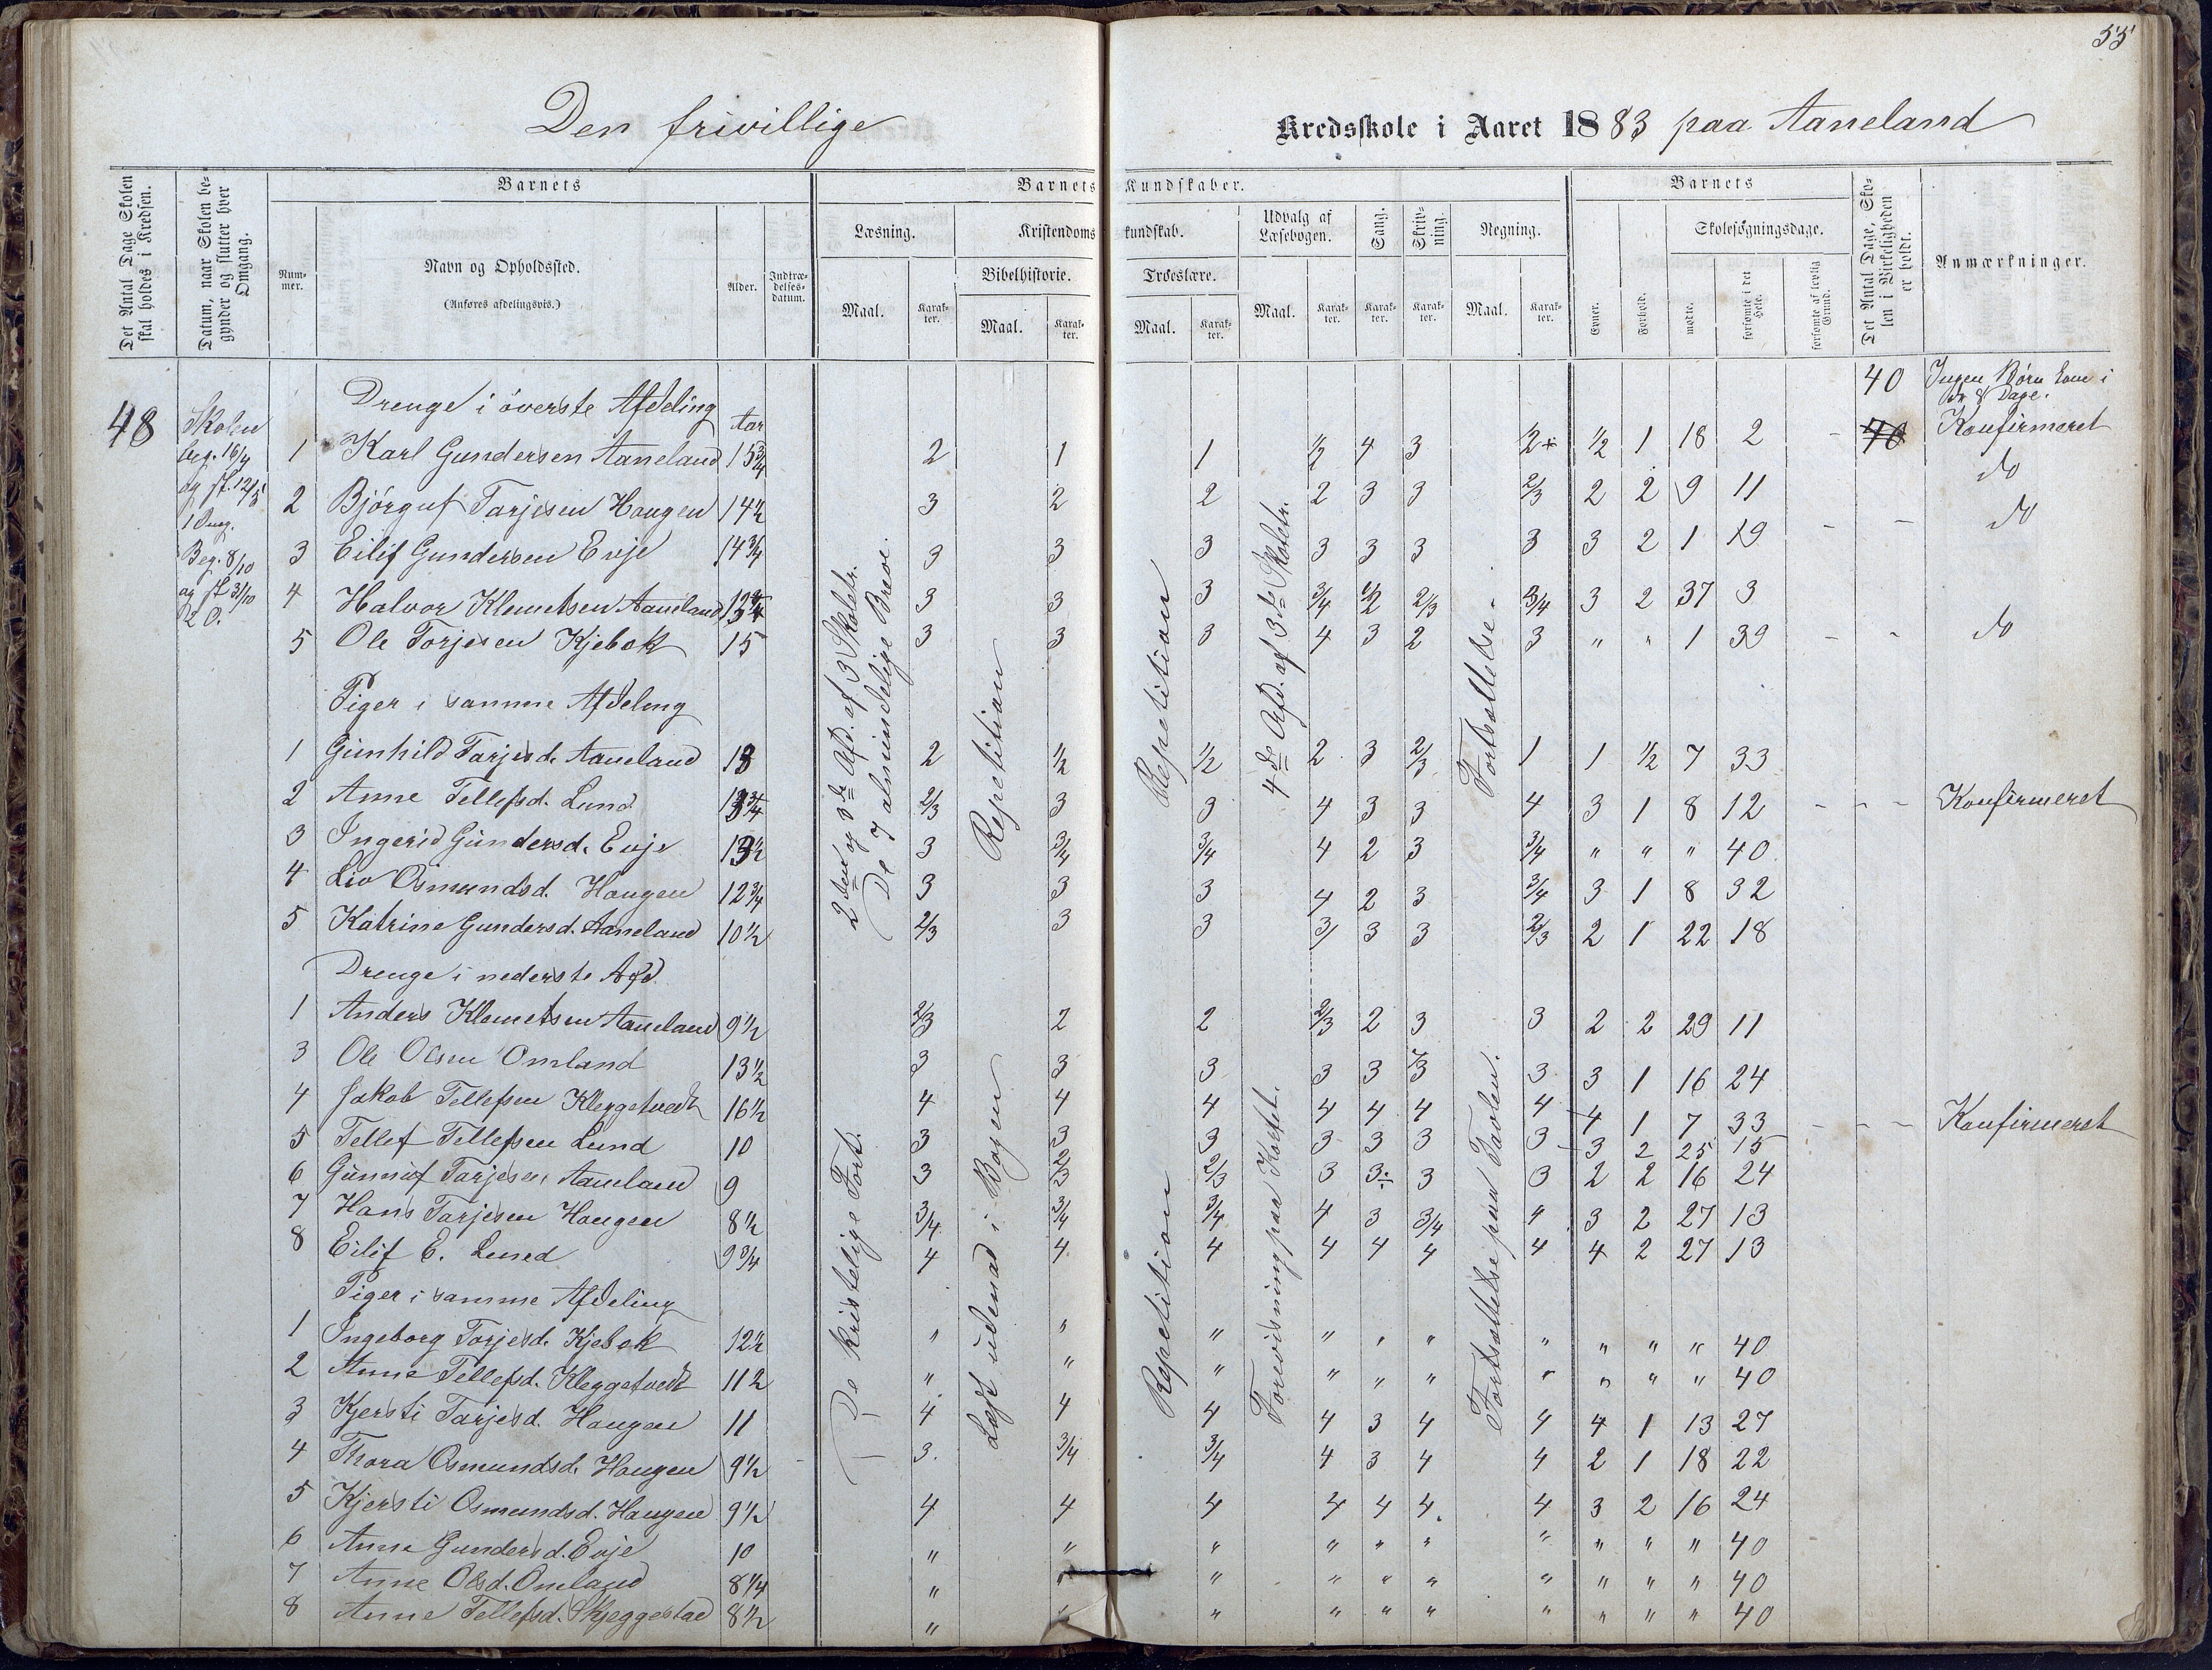 55
Den frivillige Kredsskole i Aaret 1883 paa Aaneland
Det Antal Dage Skolen skal holdes i Kredsen.
Datum, naar Skolen begynder og slutter hver Omgang.
Barnets
Num-mer.
Navn og Opholdssted.
(Anføres afdelingsvis.)
Alder.
Indtræ-delses-datum.
Barnets Kundskaber.
Læsning.
Maal.
Karak-ter.
Kristendomskundskab.
Bibelhistorie.
Maal.
Karak-ter.
Troeslære.
Maal.
Karak-ter.
Udvalg af Læsebogen.
Maal.
Karak-ter.
Sang.
Karak-ter.
Skriv-ning.
Karak-ter.
Regning.
Maal.
Karak-ter.
Barnets
Evner.
Forhold.
Skolesøgningsdage.
mødte.
forsømte i det Hele.
forsømte af lovlig Grund.
Det Antal Dage, Sko-len i Virkeligheden er holdt.
Anmærkninger.
48
Skolen
beg. 16/4
og sl. 12/5
1 Omg.
Beg. 8/10
og sl 31/10
2 O.
40 Ingen Børn kom i
8 Dage.
Drenge i øverste Afdeling Aar
1 Karl Gundersen Aaneland 15 3/4 2 1 1 1/2 4 3 1/2 1 18 2 Konfirmeret
2 Bjørguf Tarjesen Haugen 14 1/2 3 2 2 2 3 3 2/3 2 2 9 11 do
3 Eilif Gundersen Evje 14 3/4 3 3 3 3 3 3 3 3 2 1 19 do
4 Halvor Klemetsen Aaneland 3 3 3 3/4 1/2 2/3 3/4 3 2 37 3
5 Ole Torjesen Kjebek 15 3 3 3 4 3 2 3 " " 1 39 do
2den og 3de Afd. af 3 Skoletr.
De 7 almindelige Breve.
Repetition
Repetition
4de Afd. af 3de Skoletr.
Fortsættelse.
Piger i samme Afdeling
1 Gunhild Tarjesd. Aaneland 13 2 1/2 1/2 2 3 2/3 1 1 1/2 7 33
2 Anne Tellefsd. Lund 13 3/4 2/3 3 3 4 3 3 4 3 1 8 12 Konfirmeret
3 Ingerid Gundersd. Evje 13 1/2 3 3/4 3/4 4 2 3 3/4 " " " 40
4 Liv Osmundsd. Haugen 12 3/4 3 3 3 4 2 3 3/4 3 1 8 32
5 Katrine Gundersd. Aaneland 10 1/2 2/3 3 3 3/ 3 3 2/3 2 1 22 18
Drenge i nederste Afd.
1 Anders Klemetsen Aaneland 9 1/2 2/3 2 2 2/3 2 3 3 2 2 29 11
3 Ole Olsen Omland 13 1/2 3 3 3 3 3 3 3 1 16 24
4 Jakob Tellefsen Kleggetvedt 16 1/2 4 4 4 4 4 4 4 4 1 7 33 Konfirmeret
5 Tellef Tellefsen Lund 10 3 3 3 3 3 3 3 3 2 25 15
6 Gunnuf Tarjesen Aaneland 9 3 2/3 2/3 3 3÷ 3 3 2 2 16 24
7 Hans Tarjesen Haugen 8 1/2 3/4 3/4 3/4 4 3 3/4 4 3 2 27 13
8 Eilif E. Lund 9 3/4 4 4 4 4 4 4 4 4 2 27 13
De kristelige Fort.
Læst udenad i Bogen
Repetition
Forevisning paa Kortet.
Fortsættelse paa Tavlen.
Piger i samme Afdeling
1 Ingeborg Torjesd. Kjebek 12 1/2 " " " " " " " " " " 40
2 Anne Tellefsd. Kleggetvedt 11 1/2 " " " " " " " " " " 40
3 Kjersti Tarjesd. Haugen 11 4 4 4 4 3 4 4 4 1 13 27
4 Thora Osmundsd. Haugen 9 1/2 3. 3/4 3/4 4 3 4 4 2 1 18 22
5 Kjersti Osmundsd. Haugen 9 1/2 4 4 4 4 4 4. 4 3 2 16 24
6 Anne Gundersd. Evje 10 " " " " " " " " " " 40
7 Anne Olsd. Omland 8 1/4 " " " " " " " " " " 40
8 Anne Tellefsd. Skjeggestad 8 1/2 " " " " " " " " " " 40